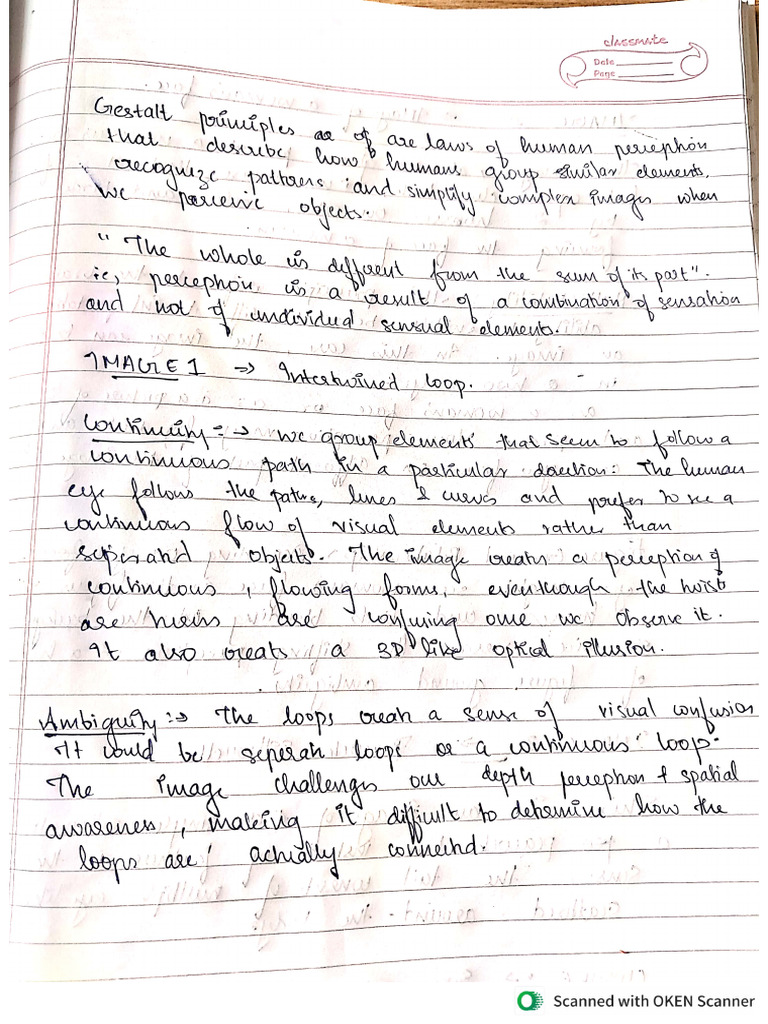 classmate
Date
Page
Gestalt principles as of are laws of human perception
that describe how humans group similar elements,
recognize patterns and simplify complex images when
we perceive objects.
"The whole is different from the sum of its part".
ie, perception is a result of a combination of sensation
and not of individual sensual elements.
IMAGE 1 => Intertwined loop.
Continuity :-> We group elements that seem to follow a
continuous path in a particular direction. The human
eye follows the paths, lines & curves and prefer to see a
continuous flow of visual elements rather than
seperated objects. The image creates a perception of
continuous, flowing forms, eventhough the twists
are turns, are confusing once we observe it.
It also creats a 3D like optical illusion.
Ambiguity :=> The loops creat a sense of visual confusion
It could be seperate loops or a continuous loop.
The image challenges our depth perception & spatial
awareness, making it difficult to determine how the
loops are actually connected.
Scanned with OKEN Scanner